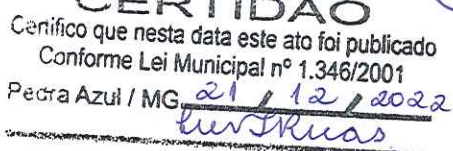 CERTIDÃO
Certifico que nesta data este ato foi publicado
Conforme Lei Municipal nº 1.346/2001
Pedra Azul / MG 21 / 12 / 2022